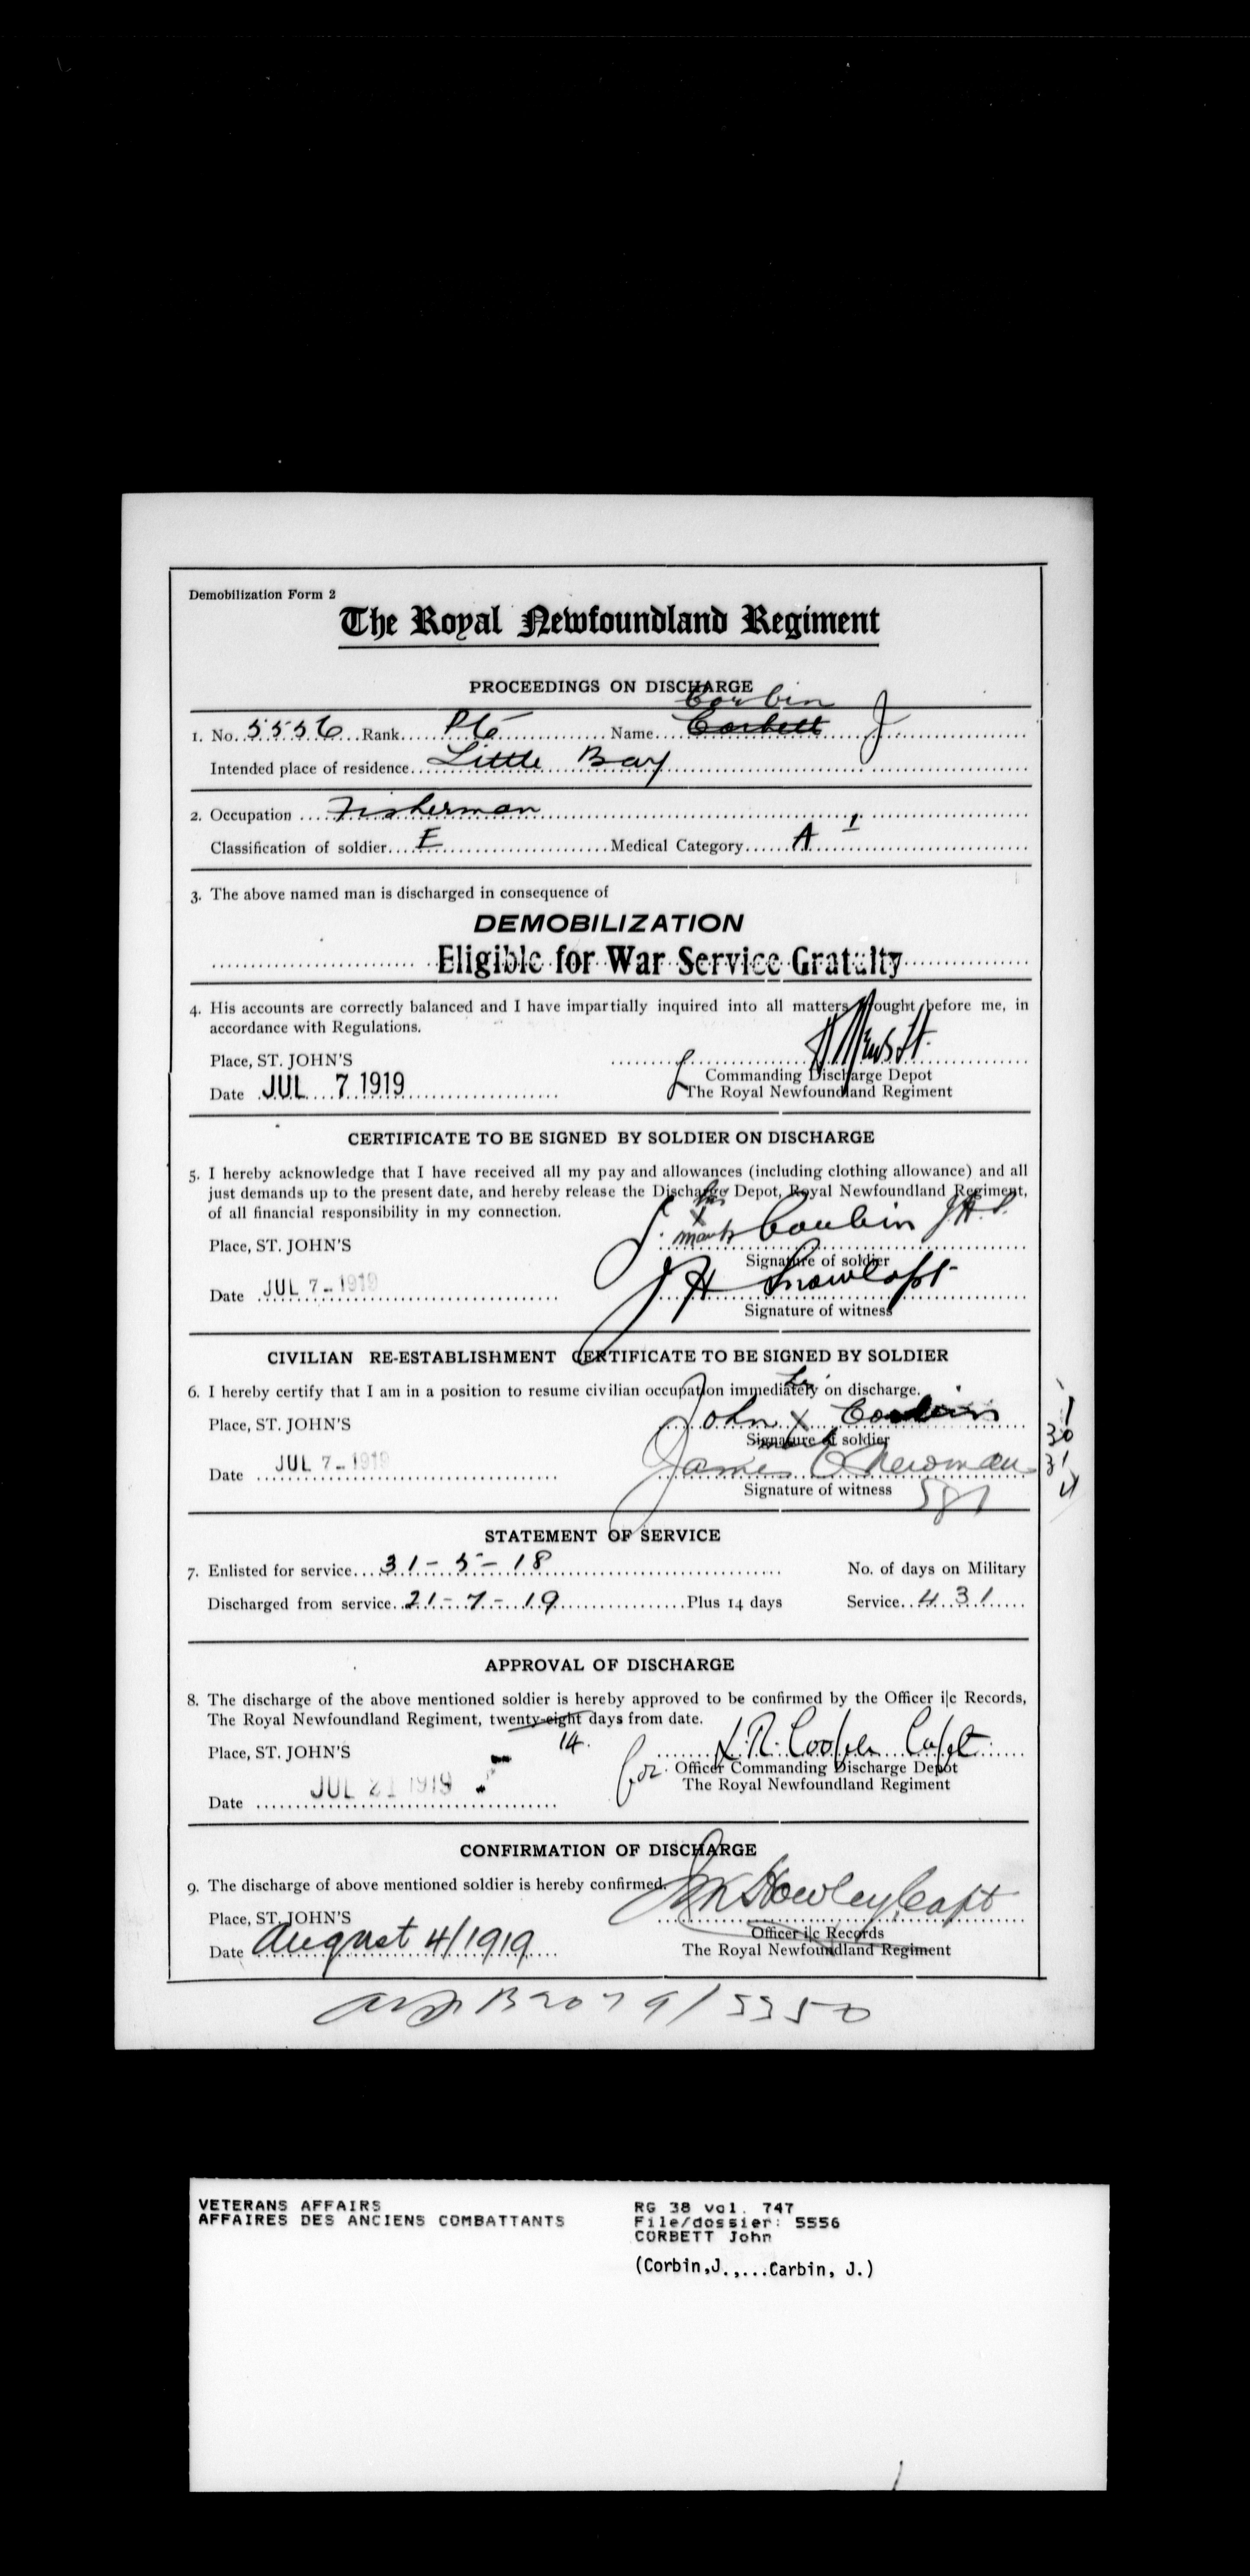 Demobilization Form 2
The Royal Newfoundland Regiment
PROCEEDINGS ON DISCHARGE
Corbin
1. No. 5556 Rank Pte Name Corbett J
Intended place of residence Little Bay
2. Occupation Fisherman
Classification of soldier E Medical Category A 1
3. The above named man is discharged in consequence of
DEMOBILIZATION
Eligible for War Service Gratuity
4. His accounts are correctly balanced and I have impartially inquired into all matters brought before me, in
accordance with Regulations.
Place, ST. JOHN'S
Commanding Discharge Depot
Date JUL 7 1919
The Royal Newfoundland Regiment
CERTIFICATE TO BE SIGNED BY SOLDIER ON DISCHARGE
5. I hereby acknowledge that I have received all my pay and allowances (including clothing allowance) and all
just demands up to the present date, and hereby release the Discharge Depot, Royal Newfoundland Regiment,
of all financial responsibility in my connection.
his
J. X Corbin
mark
Place, ST. JOHN'S
Signature of soldier
Date JUL 7-1919
J H
Signature of witness
CIVILIAN RE-ESTABLISHMENT CERTIFICATE TO BE SIGNED BY SOLDIER
6. I hereby certify that I am in a position to resume civilian occupation immediately on discharge.
his
Place, ST. JOHN'S John X Corbin
Signature of soldier
mark
Date JUL 7-1919 James Newman
Signature of witness
1
30
31
STATEMENT OF SERVICE
7. Enlisted for service 31-5-18 No. of days on Military
Discharged from service 21-7-19 Plus 14 days Service 431
APPROVAL OF DISCHARGE
8. The discharge of the above mentioned soldier is hereby approved to be confirmed by the Officer i|c Records,
The Royal Newfoundland Regiment, twenty-eight days from date.
14.
Place, ST. JOHN'S L.R. Cooper Capt
for Officer Commanding Discharge Depot
The Royal Newfoundland Regiment
Date JUL 21 1919
CONFIRMATION OF DISCHARGE
9. The discharge of above mentioned soldier is hereby confirmed.
Howley Capt
Place, ST. JOHN'S
Officer i|c Records
Date August 4/1919
The Royal Newfoundland Regiment
B2079/5550
VETERANS AFFAIRS
AFFAIRES DES ANCIENS COMBATTANTS
RG 38 vol. 747
File/dossier: 5556
CORBETT John
(Corbin,J.,...Carbin, J.)